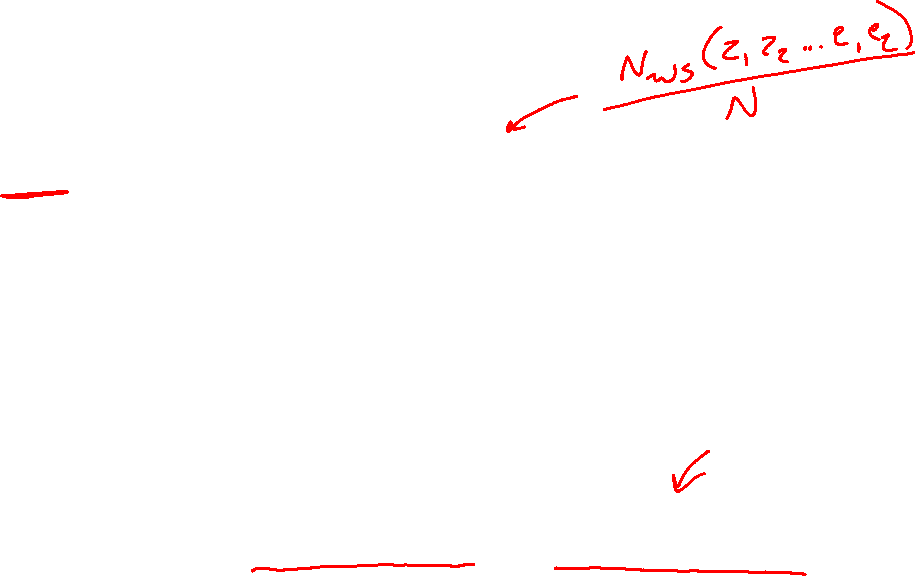 N_ws(z_1 z_2 ... e_1 e_2)
N